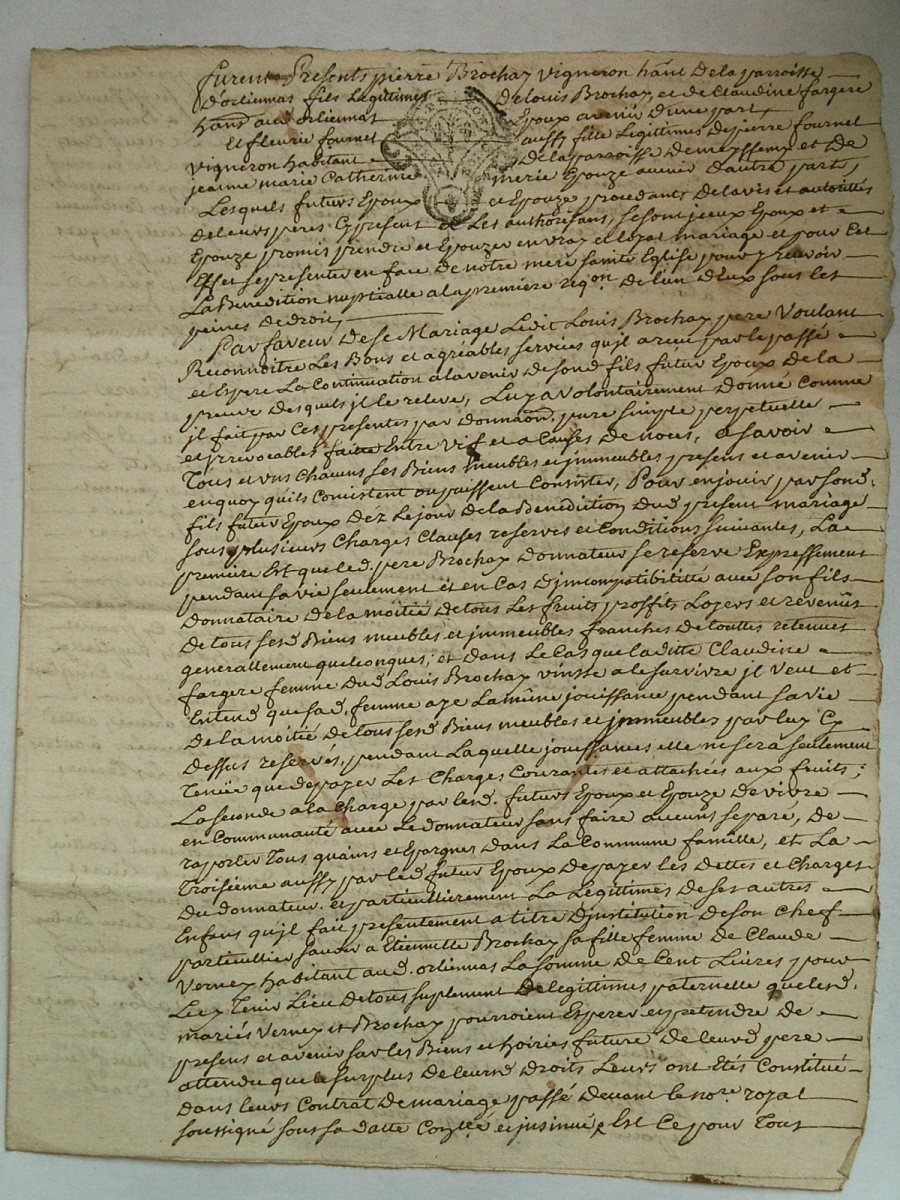 furent Presents pierre Brochay vigneron hãnt De la parroisse
d'orliennas fils Legittimes De Louis Brochay, et de Claudine fargere
hand aud orliennas Epoux avenir D'une part
Et fleurie fournel aussy fille Legittimes De pierre fournel
vigneron habitant De la parroisse De messemy et De
jeanne marie Catherine merie Epouze avenir D'autre part,
Lesquels futurs Epoux et Epouze procedants De lavis et autorittés
De leurs peres Cy present et Les authorisans, se sont jceux Epoux et
Epouze promis prendre et Epouzer en vray et loyal mariage et pour Cet
Effet se presenter en face De notre mere sainte Eglise pour y recevoir
La Benedition nuptialle a la premiere reqon. De l'un D'Eux sous les
peines de droit,
Par faveur De se Mariage Ledit Louis Brochay pere Voulant
Reconnoitre Les Bons et agreables services qu'jl a reçu par le passé
et Espere La Continuation a lavenir De sond fils futur Epoux De la
preuve Desquels jl le releve, Luy a volontairement Donné Comme
jl fait par Ces presentes par Donnaõn. pure simple perpetuelle
et jrrevocables faitte Entre vif et a Causes De noces, a savoir
Tous et uns Chacuns ses Biens meubles et jmmeubles presens et avenir
en quoy qu'ils Consistent ou puissent Consister, Pour en jouir par sond.
fils futur Epoux Dez Le jour De la Benedition Dud present mariage
sous plusieurs Charges Clauses reserves et Conditions suivantes, La
premiere Est que led. pere Brochay Donnateur se reserve Expressement
pendant sa vie seulement et en Cas D'jmcompatibilitté avec son fils
Donnataire De la moitié De tous Les fruits proffits Loyers et revenüs
De tous sesd Biens meubles et jmmeubles franches De touttes retenues
generallement quelconques; et dans Le Cas que laditte Claudine
fargere femme Dud Louis Brochay vinsse a le survivre jl veut et
Entend que sad. femme aye La même jouissance pendant sa vie
De la moitié De tous sesd Biens meubles et jmmeubles par luy Cy
Dessus reservés, pendant Laquelle jouissances elle ne sera seulement
Tenüe que De payer Les Charges Courantes et attachées aux fruits;
La seconde a la Charge par lesd. futurs Epoux et Epouze De vivre
en Communauté avec Le donnateur sans faire aucuns separé, De
raporter Tous quains et Epargnes Dans La Commune famille, et La
Troisième aussy par led futur Epoux De payer les Dettes et Charges
Du donnateur. et particullierement La Legittimes De ses autres
Enfans qu'jl fait presentement a titre D'jnstitution De son Chef
particullier savoir a Etiennette Brochay sa fille femme De Claude
Verney habitant aud. orliennas La somme De Cent Livres pour
Luy Tenir Lieu De tous suplement De legittimes paternelle que lesd.
mariés Verney et Brochay pourroient Esperer et pretendre De
presens et avenir sur les Biens et hoiries future De leurd pere
attendu que le surplus De leursd Droits Leurs ont Etés Constitué
dans leurs Contrat De mariage passé Devant le nore. royal
soussigné sous sa datte et jnsinué Est Ce pour Tous